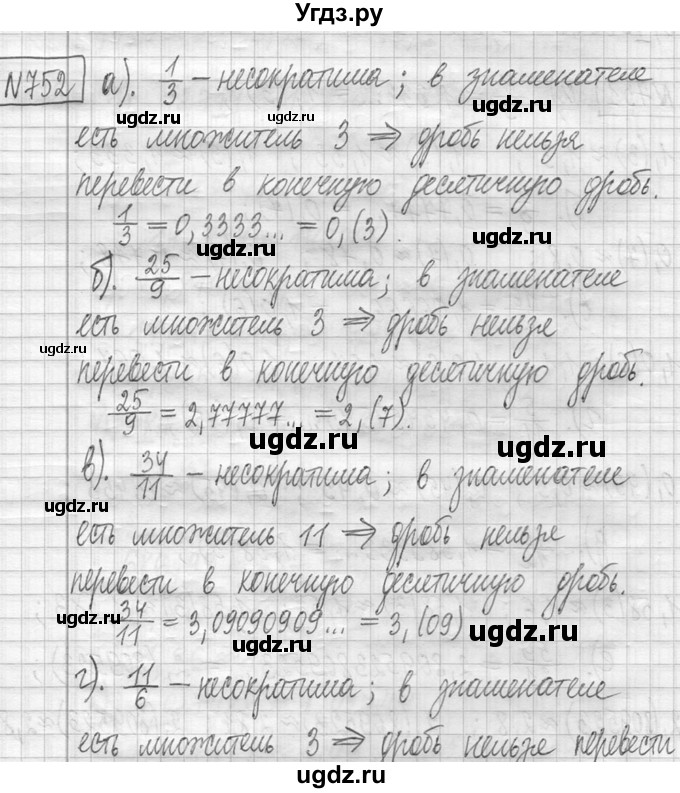 Угдз.ру
№752 а). 1/3 – несократима; в знаменателе
есть множитель 3 ⇒ дробь нельзя
перевести в конечную десятичную дробь.
1/3 = 0,3333... = 0,(3).
б). 25/9 – несократима; в знаменателе
есть множитель 3 ⇒ дробь нельзя
перевести в конечную десятичную дробь.
25/9 = 2,77777... = 2,(7).
в). 34/11 – несократима; в знаменателе
есть множитель 11 ⇒ дробь нельзя
перевести в конечную десятичную дробь.
34/11 = 3,09090909... = 3,(09)
г). 11/6 – несократима; в знаменателе
есть множитель 3 ⇒ дробь нельзя перевести
ugdz.ru
ugdz.ru
ugdz.ru
ugdz.ru
ugdz.ru
ugdz.ru
ugdz.ru
ugdz.ru
ugdz.ru
ugdz.ru
ugdz.ru
ugdz.ru
ugdz.ru
ugdz.ru